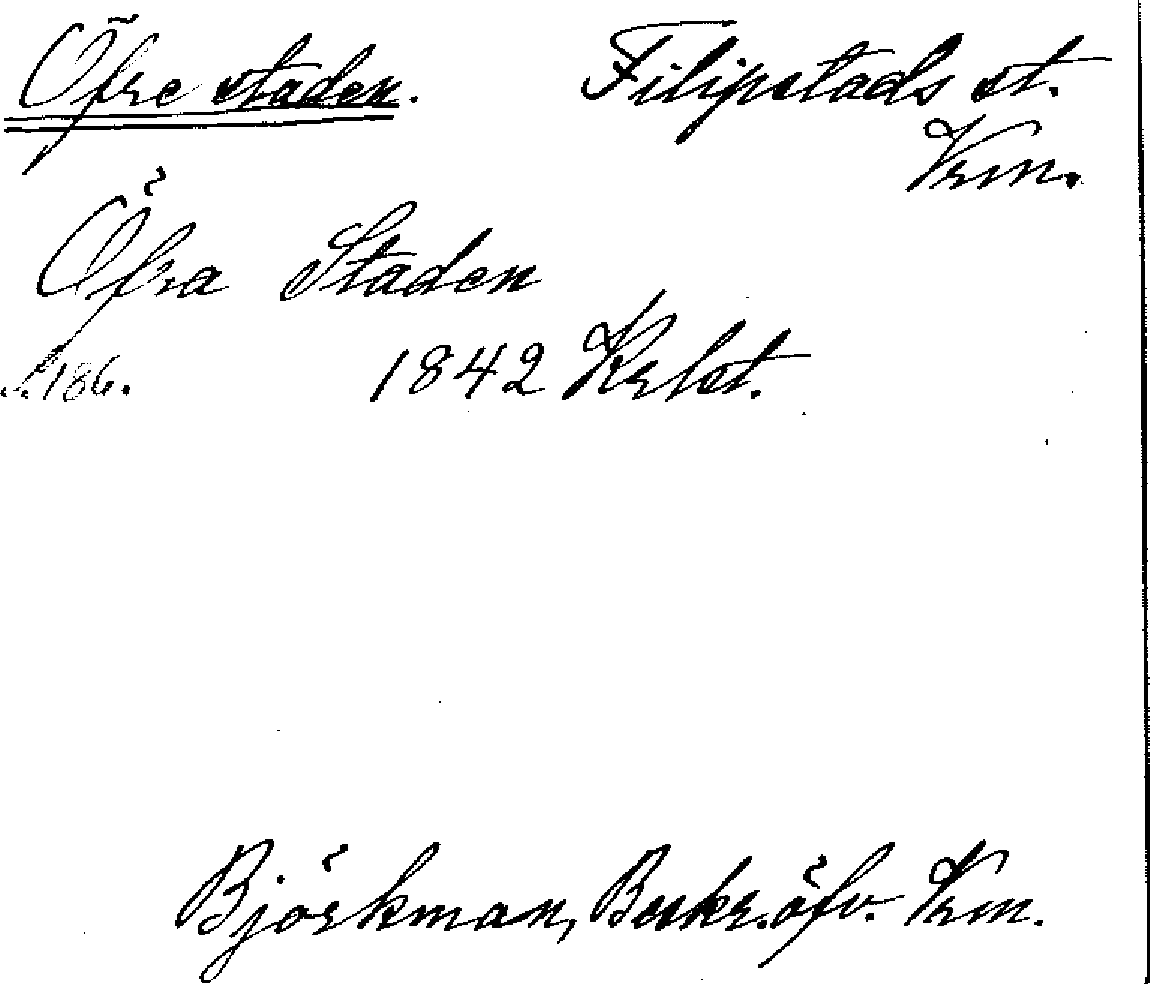 Öfre staden. Filipstads st.
Vrm.
Öfra Staden
s. 186. 1842 Krlst.
Björkman, Beskr. öfv. Vrm.